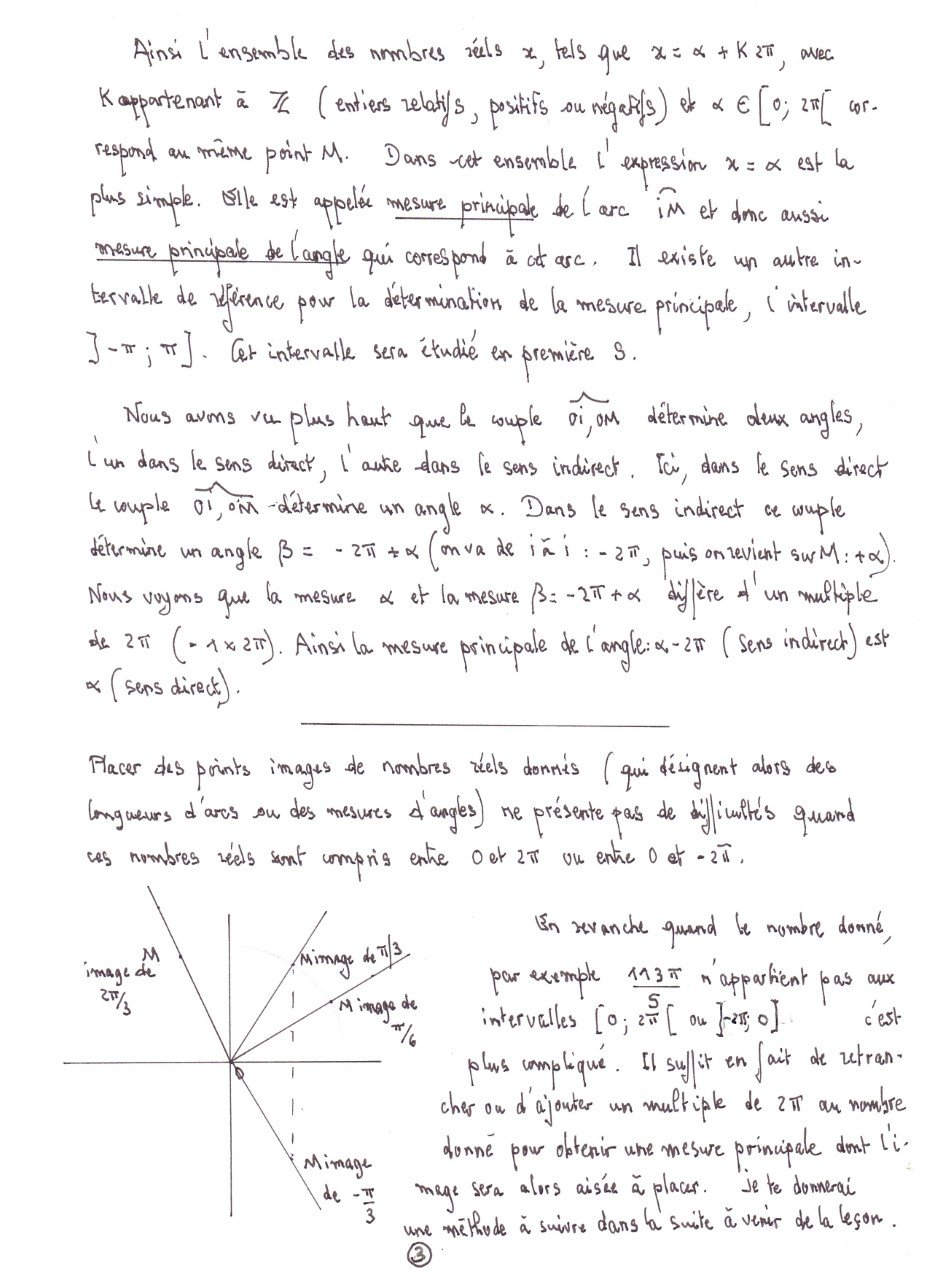 Ainsi l'ensemble des nombres réels x, tels que x = α + K 2π, avec
K appartenant à ℤ (entiers relatifs, positifs ou négatifs) et α ∈ [0; 2π[ cor-
respond au même point M. Dans cet ensemble l'expression x = α est la
plus simple. Elle est appelée mesure principale de l'arc iM et donc aussi
mesure principale de l'angle qui correspond à cet arc. Il existe un autre in-
tervalle de référence pour la détermination de la mesure principale, l'intervalle
]-π; π]. Cet intervalle sera étudié en première S.
Nous avons vu plus haut que le couple Oi, OM détermine deux angles,
l'un dans le sens direct, l'autre dans le sens indirect. Ici, dans le sens direct
le couple Oi, OM détermine un angle α. Dans le sens indirect ce couple
détermine un angle β = -2π + α (on va de i à i : -2π, puis on revient sur M : +α).
Nous voyons que la mesure α et la mesure β = -2π + α diffère d'un multiple
de 2π (-1 x 2π). Ainsi la mesure principale de l'angle: α - 2π (sens indirect) est
α (sens direct).
Placer des points images de nombres réels donnés (qui désignent alors des
longueurs d'arcs ou des mesures d'angles) ne présente pas de difficultés quand
ces nombres réels sont compris entre 0 et 2π ou entre 0 et -2π.
M
image de
2π/3
M image de π/3
M image de
π/6
O
M image
de -π/3
En revanche quand le nombre donné,
par exemple 113π/5 n'appartient pas aux
intervalles [0; 2π[ ou ]-2π; 0] c'est
plus compliqué. Il suffit en fait de retran-
cher ou d'ajouter un multiple de 2π au nombre
donné pour obtenir une mesure principale dont l'i-
mage sera alors aisée à placer. Je te donnerai
une méthode à suivre dans la suite à venir de la leçon.
3